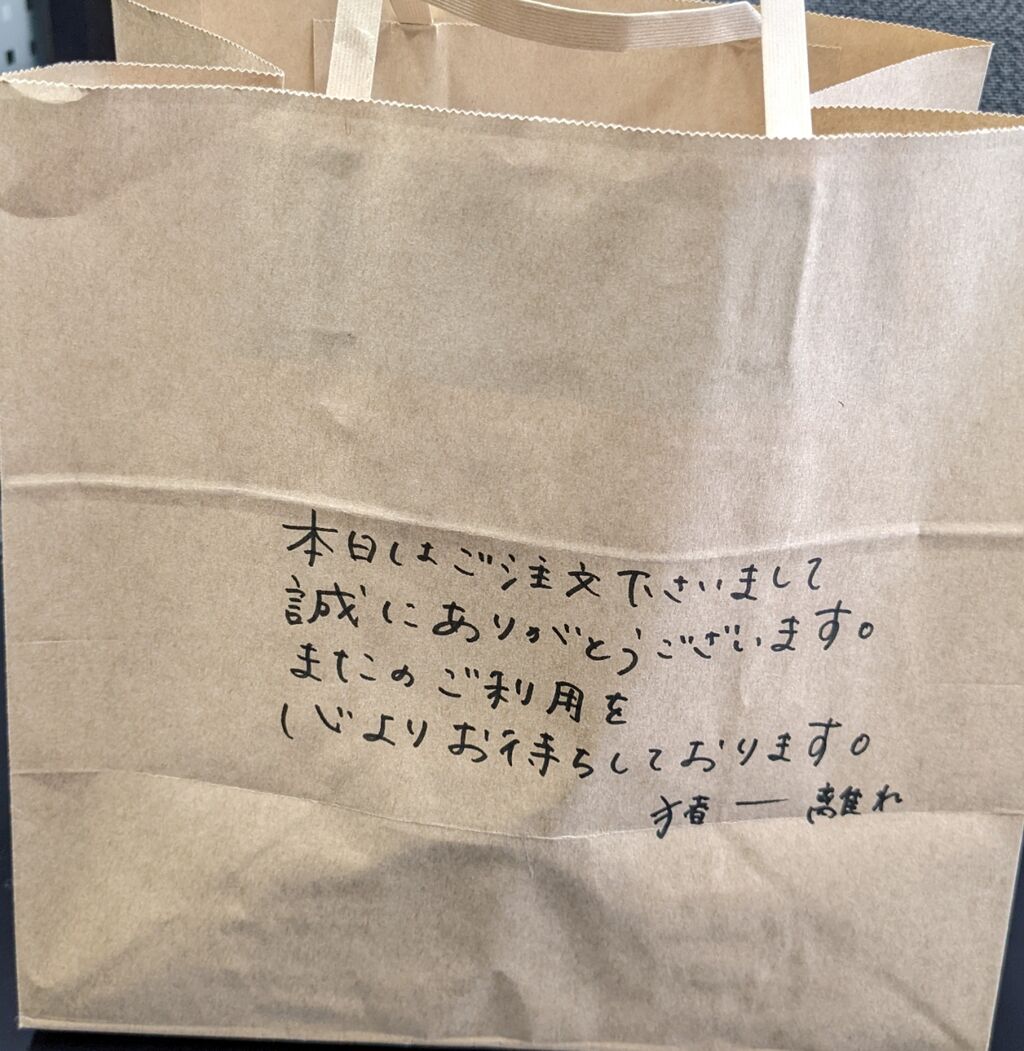 本日はご注文下さいまして
誠にありがとうございます。
またのご利用を
心よりお待ちしております。
猪一離れ